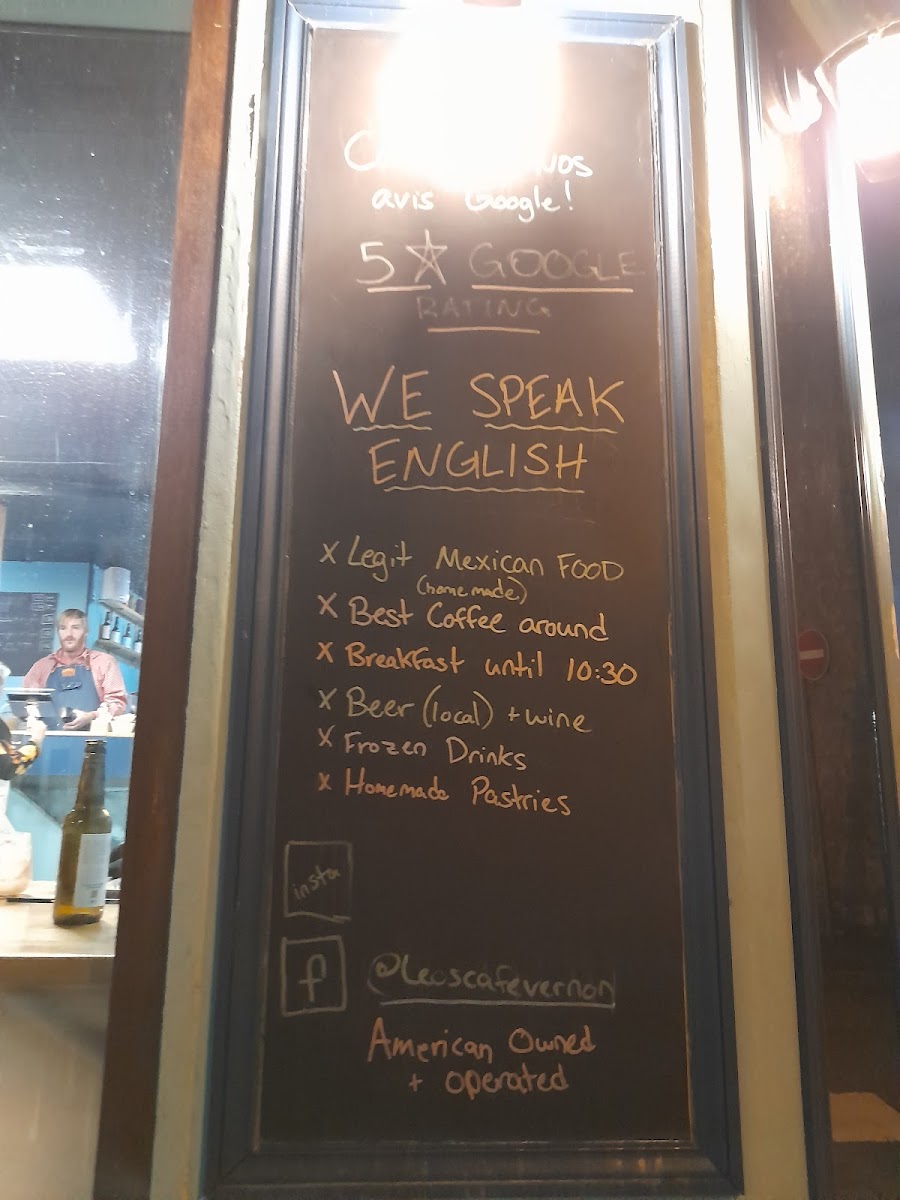 vos
avis Google!
5☆ GOOGLE
RATING
WE SPEAK
ENGLISH
x Legit Mexican FOOD
(home made)
x Best Coffee around
x Breakfast until 10:30
x Beer (local) + wine
x Frozen Drinks
x Homemade Pastries
insta
f
@leoscafevernon
American Owned
+ operated